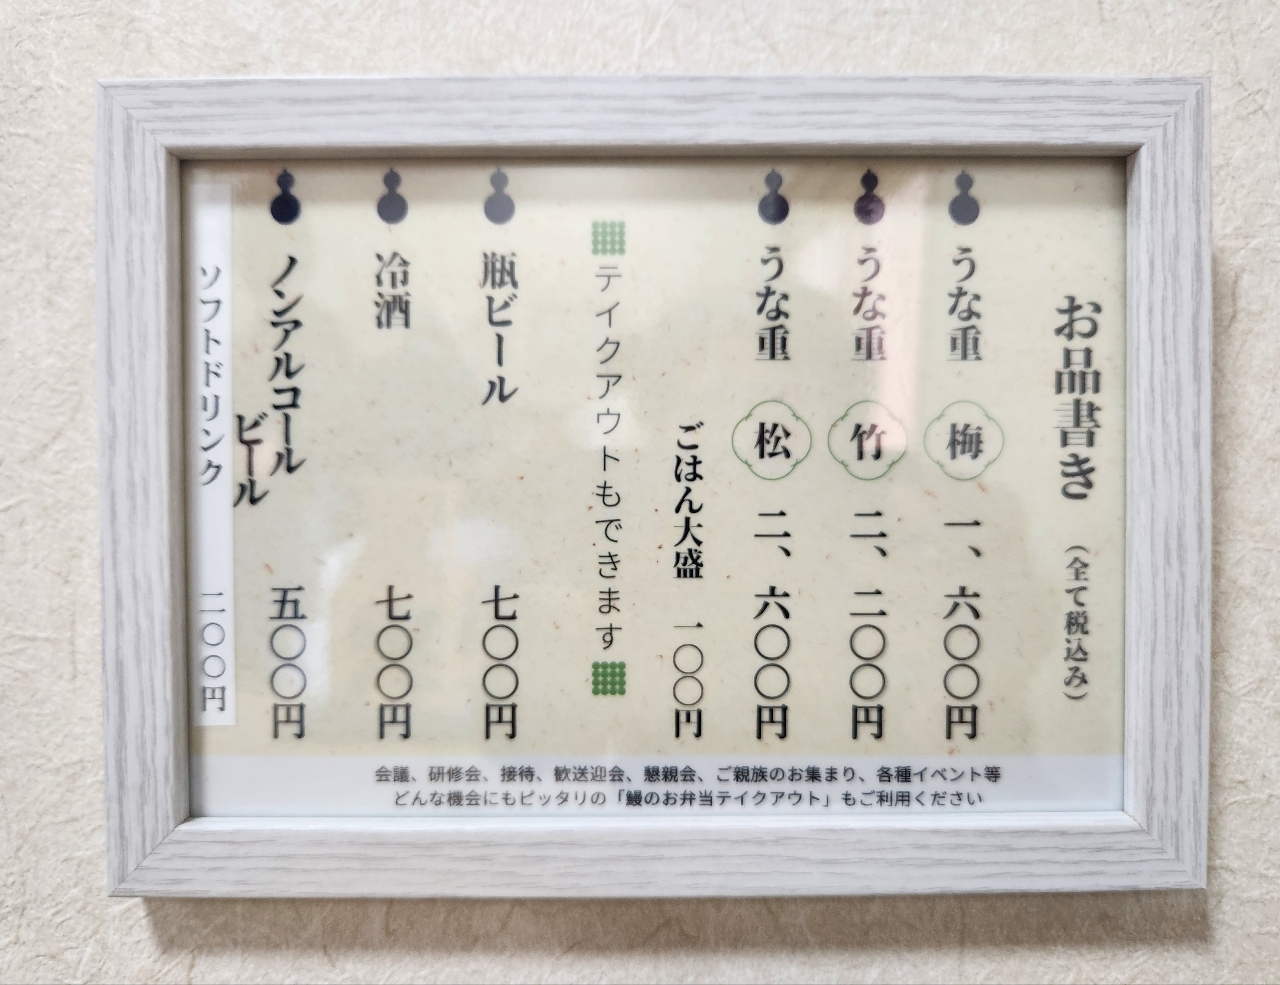 お品書き （全て税込み）
うな重 梅 一、六〇〇円
うな重 竹 二、二〇〇円
うな重 松 二、六〇〇円
ごはん大盛 一〇〇円
テイクアウトもできます
瓶ビール 七〇〇円
冷酒 七〇〇円
ノンアルコール
ビール 五〇〇円
ソフトドリンク 二〇〇円
会議、研修会、接待、歓送迎会、懇親会、ご親族のお集まり、各種イベント等
どんな機会にもピッタリの「鰻のお弁当テイクアウト」もご利用ください